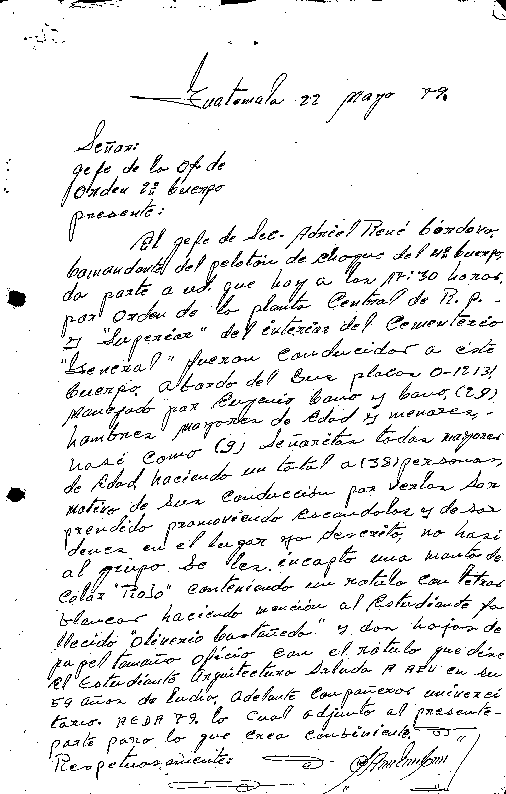 Guatemala 22 mayo 79.
Señor:
gefe de la Of. de
Orden 2º Cuerpo
presente:
El gefe de Sec. Adriel René Córdova.
Comandante del pelotón de choque del 4º Cuerpo,
da parte a ud. que hoy a las 17:30 horas,
por orden de la planta Central de R.P.-
y "Superior" del interior del Cementerio
"General" fueron conducidos a este
Cuerpo, abordo del Bus placas O-1213,
manejado por Eugenio Cano y Cano, (29)
hombres mayores de edad y menores,-
hasí como (9) Señoritas todas mayores
de Edad, haciendo un total a (38) personas,
motivo de su conducción por verlas sor
prendido promoviendo Escándalos y desor
denes en el lugar ya descrito, no hasi
al grupo se les incapto una manta de
color "Rojo" conteniendo un rotulo con letras
blancas haciendo mención al Estudiante fa
llecido "Oliverio Castañeda" y dos hojas de
papel tamaño oficio con el rótulo que dise
El Estudiante Arquitectura Saluda A AEU en su
59 años de lucha, adelante compañeros univerci
tario. AEDA 79. lo cual adjunto al presente-
parte para lo que crea combiniente.
Respetuosamente: